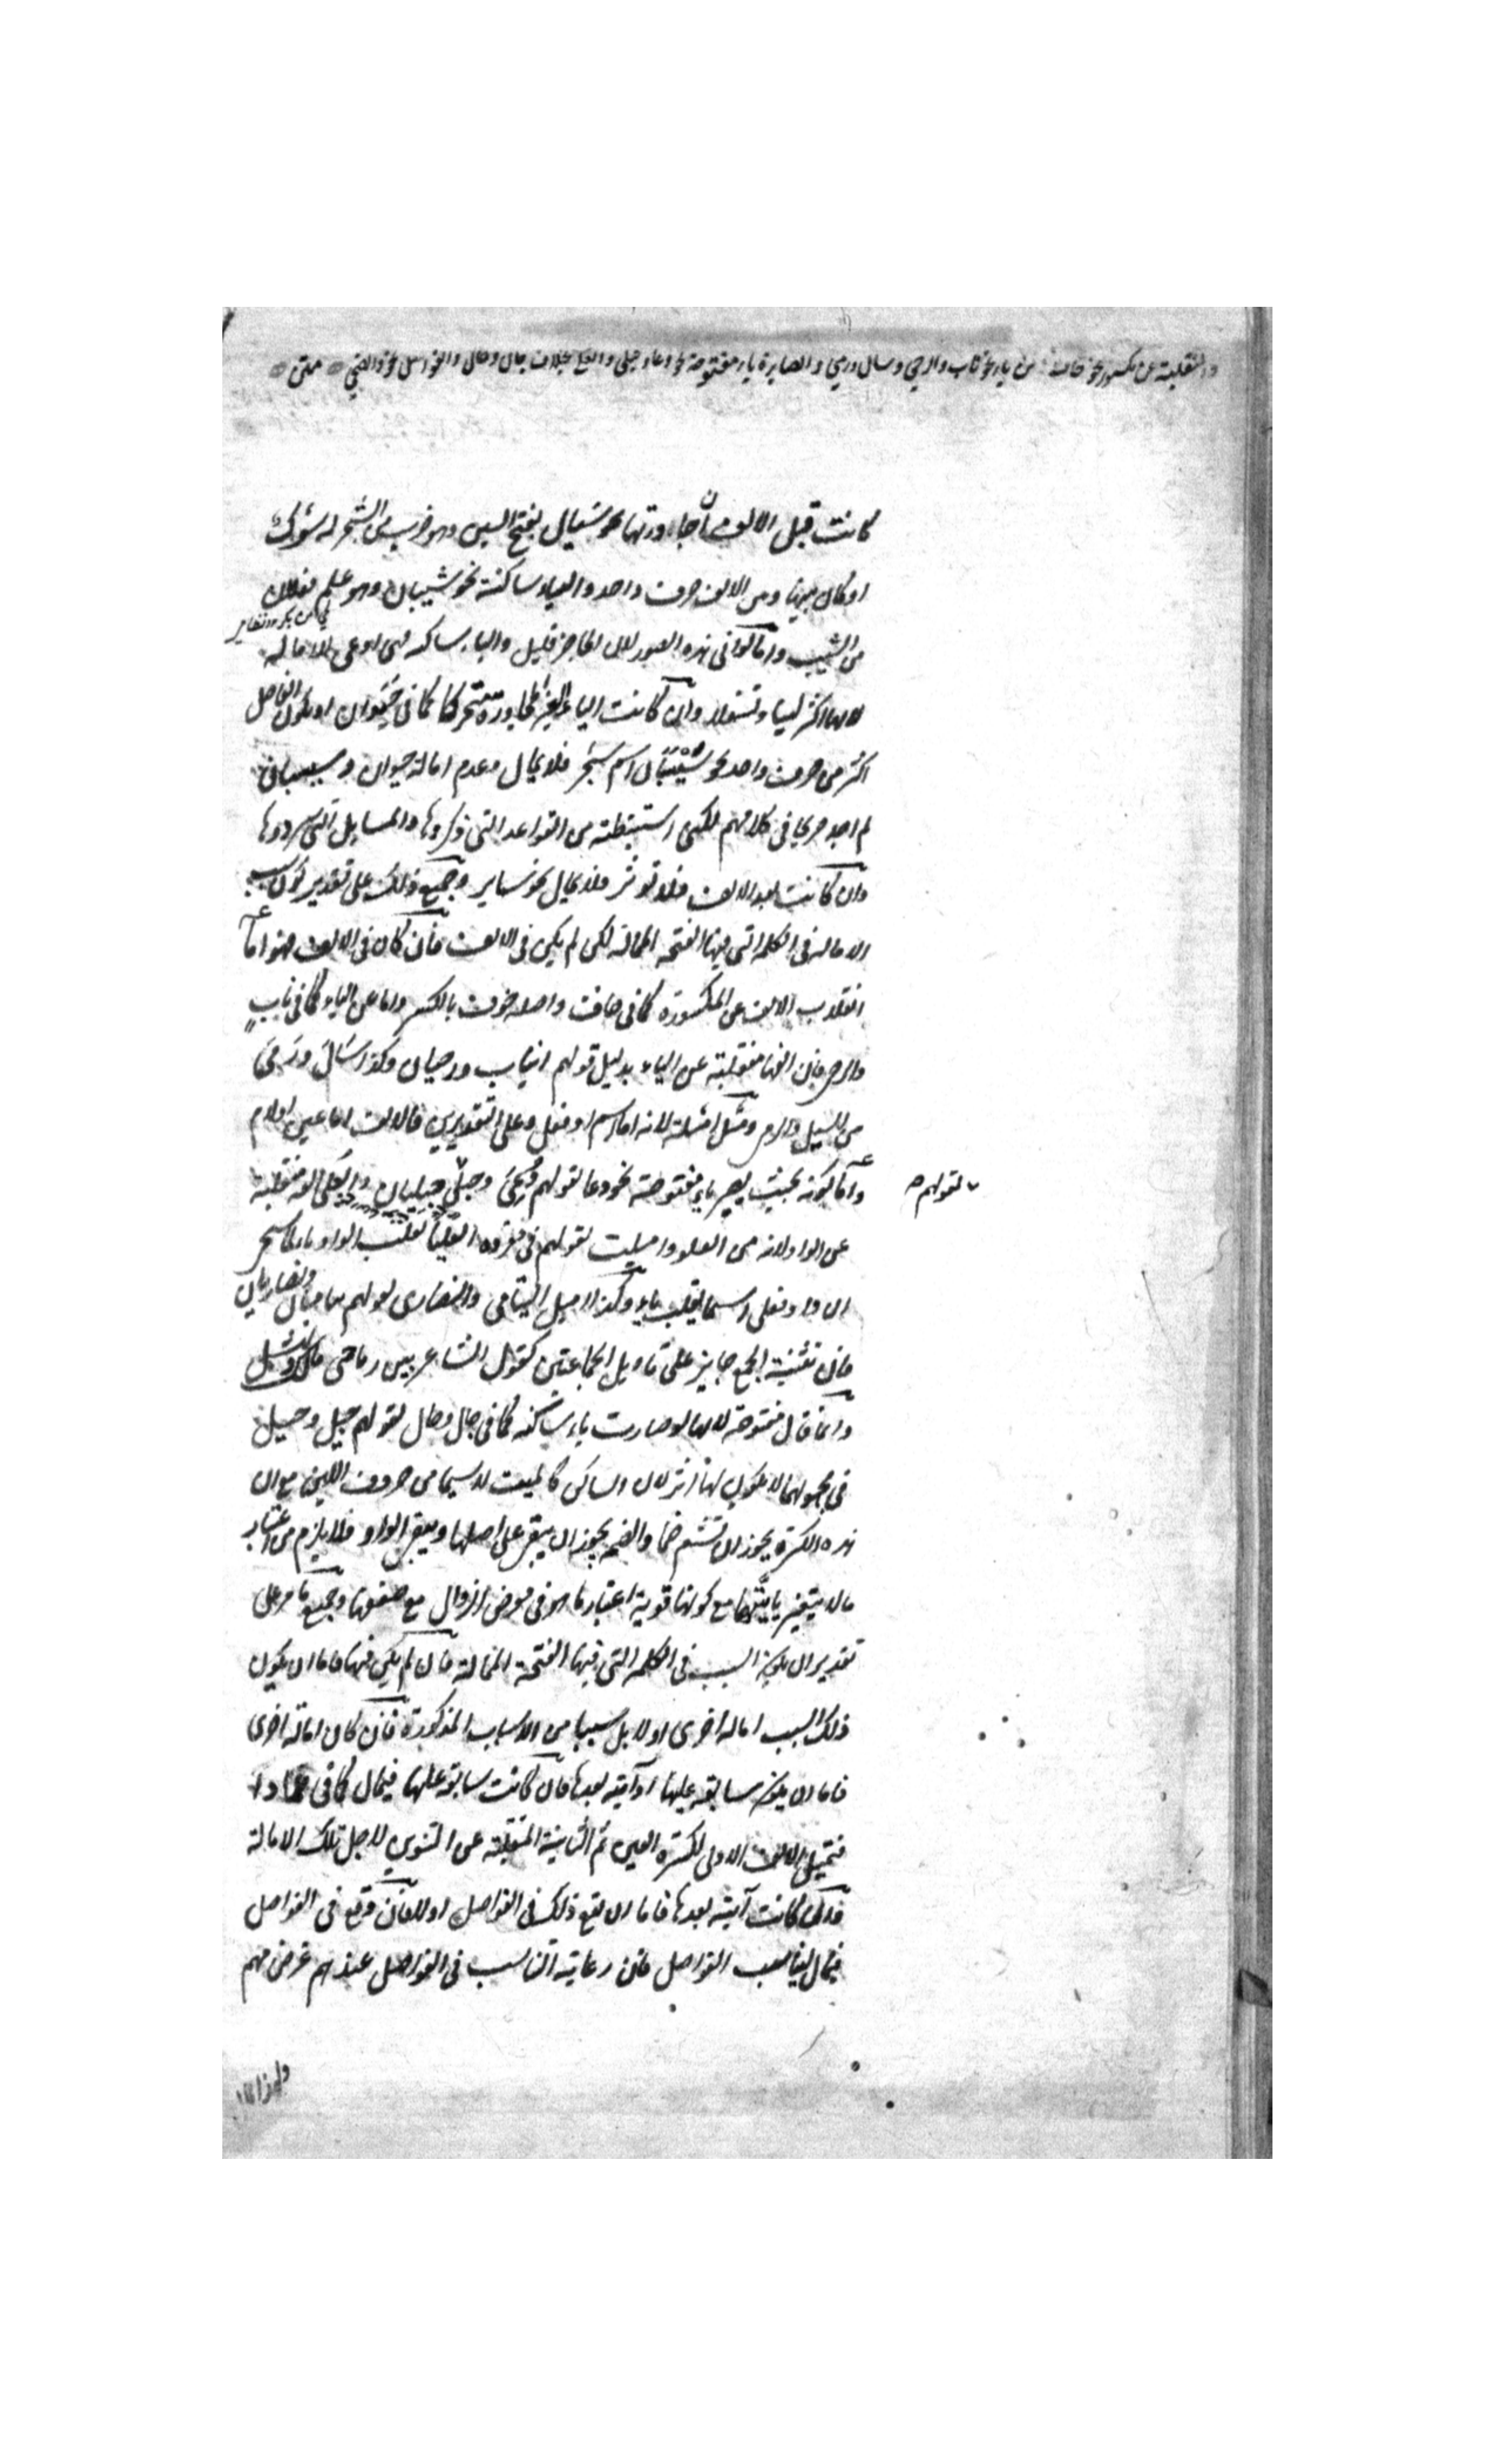 والمنقلبة عن مكسور نحو خاف وعن ياء نحو ناب والرحى وسال ورمى والصايرة ياء مفتوحة نحو دعا وحبلى والعلى بخلاف جال وحال والفواصل نحو والضحى متن
كانت قبل الالف فان جاورتها نحو سَيال بفتح السين وهو ضرب من الشجر له شوك
او كان بينها وبين الالف حرف واحد والياء ساكنة نحو شيبان وهو علم فعلان
من الشيب وانما اثر في هذه الصور لان الحاجز قليل والياء ساكنة فهى ادعى للامالة
لانها اكثر لينا وتسفلا وان كانت الياء الغير المجاورة متحركا كما في حَيَوان او يكون الفاصل
اكثر من حرف واحد نحو اسم شجر فلا يمال وعدم امالة حيوان و
لم اجد صريحا في كلامهم لكنى استنبطته من القواعد التى ذكروها والمسايل التى سردوها
وان كانت بعد الالف فلا تؤثر فلا يمال نحو ساير وجميع ذلك على تقدير كون سبب
الامالة في الكلمة التى فيها الفتحة الممالة لكن لم يكن في الالف فان كان في الالف فهو اما
انقلاب الالف عن المكسورة كما في خاف واصله خوف بالكسر واما عن الياء كما في نابٍ
والرحى فان الفها منقلبة عن الياء بدليل قولهم انياب ورحيان وكذا سَالَ ورَمَى
من السيل والرمى ومثل امثلة لانه اما اسم او فعل وعلى التقديرين فالالف اما عين او لام
واما كونه بحيث يصير ياء مفتوحة نحو دعا لقولهم دُعِىَ وحبلى حبليان والعُلى الفه منقلبة
لقولهم
عن الواو لانه من العلو واميلت لقولهم في مفرده العُليا بقلب الواو ياء لما سيجئ
ان واو فعلى اسما يقلب ياء وكذا اميل اليتامى والنصارى لقولهم يتاميان ونصاريان
فان تثنية الجمع جايز على تاويل الجماعتين كقول الشاعر بين رماحى مالك ونهشل
وانما قال مفتوحة لانها لو صارت ياء ساكنة كما في جال وحال لقولهم جيل وحيل
في مجهولهما لا يكون لها اثر لان الساكن كالميت لا سيما من حروف اللين مع ان
هذه الكسرة يجوز ان تشم ضما والضم يجوز ان يبقى على اصلها ويبقى الواو فلا يلزم من اعتبار
ما لا يتغير يائيتها مع كونها قوية اعتبار ما هو في معرض الزوال مع ضعفها وجميع ما مر على
تقدير ان يكون السبب في الكلمة التى فيها الفتحة الممالة فان لم يكن فيها فاما ان يكون
ذلك السبب امالة اخرى او لا بل سببا من الاسباب المذكورة فان كان امالة اخرى
فاما ان يكون سابقة عليها او آتية بعدها فان كانت سابقة عليها فيمال كما في عمادا
فتميل الالف الاولى لكسرة العين ثم الثانية المنقلبة عن التنوين لاجل تلك الامالة
وان كانت آتية بعدها فاما ان يقع ذلك في الفواصل او لا فان وقع في الفواصل
فيمال ليناسب الفواصل فان رعاية التناسب في الفواصل عندهم غرض مهم
ولهذا